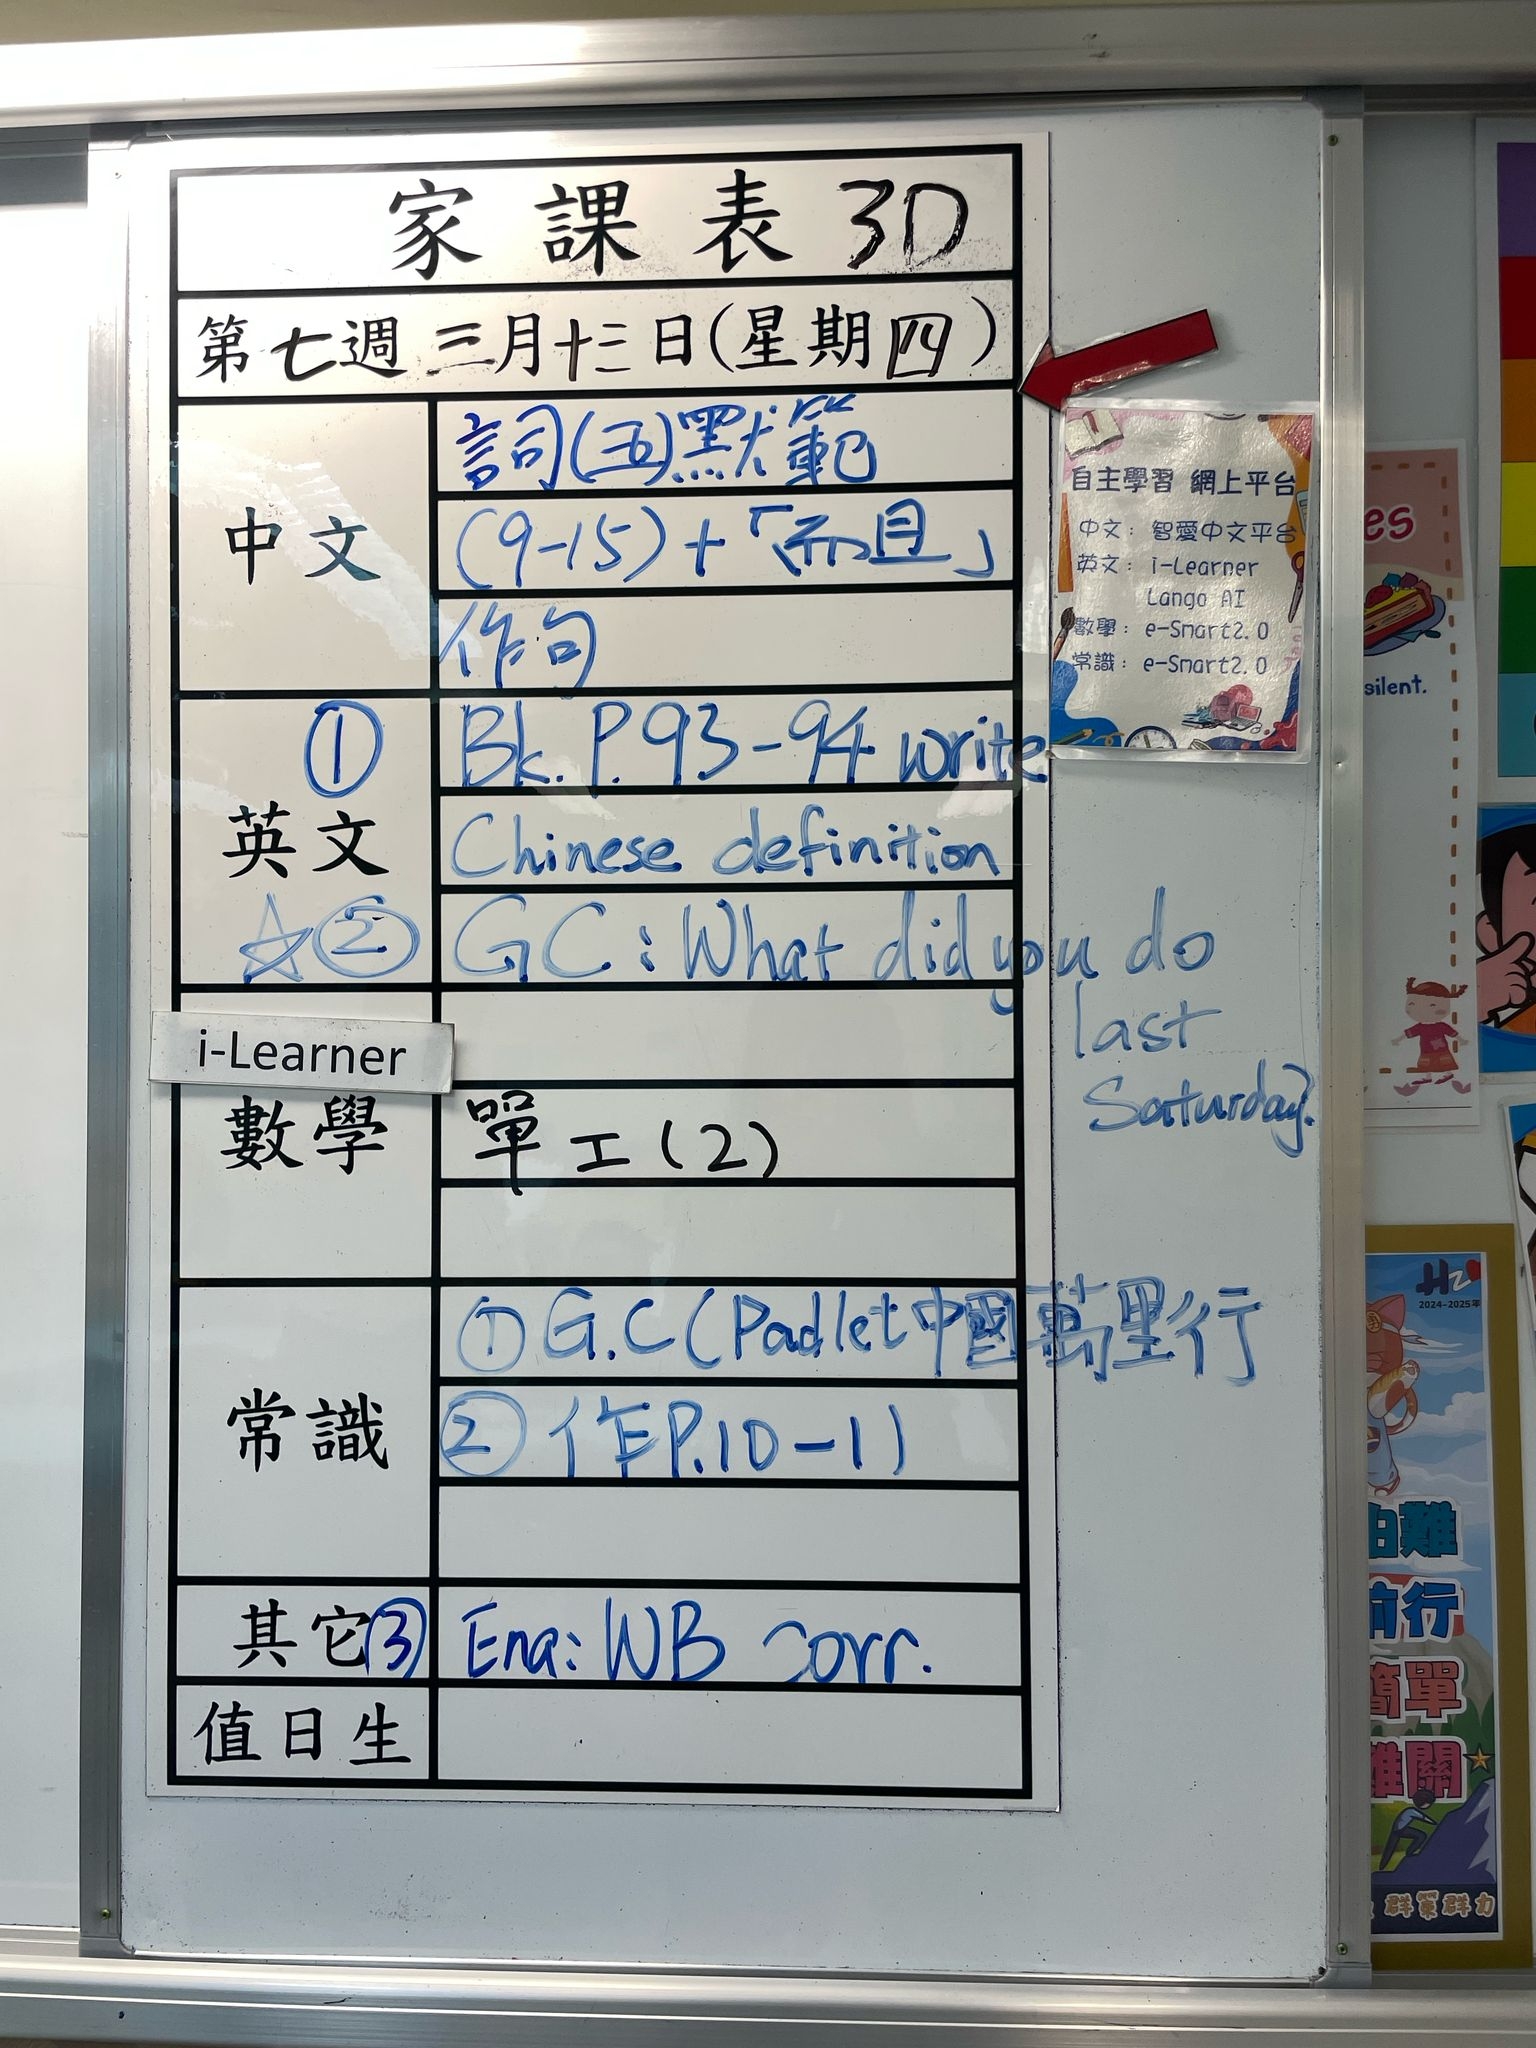 家課表 3D
第七週 三月十三日(星期四)
中文
詞(五)默範
(9-15)+「而且」
作句
英文
① Bk. P. 93-94 write
Chinese definition
☆② GC: What did you do
last
Saturday?
i-Learner
數學
單工(2)
常識
① G.C (Padlet中國萬里行
② 作P.10-11
其它
③ Eng: WB corr.
值日生
自主學習 網上平台
中文: 智愛中文平台
英文: i-Learner
Lango AI
數學: e-Smart2.0
常識: e-Smart2.0
es
silent.
2024-2025年
怕難
前行
簡單
難關
群策群力